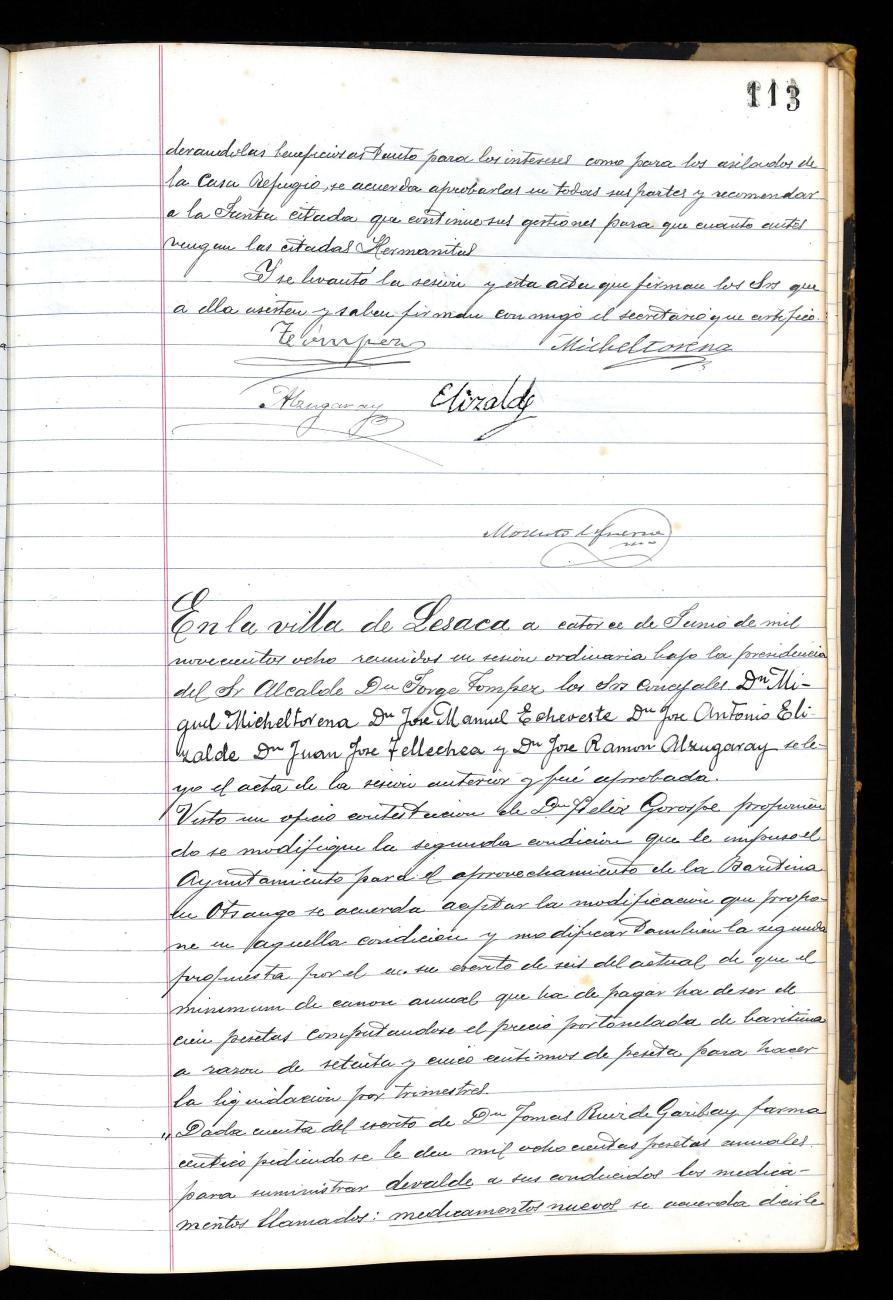 113
derandolas beneficiosas tanto para los intereses como para los asilados de
la Casa Refugio, se acuerda aprobarlas en todas sus partes y recomendar
a la Junta citada que continue sus gestiones para que cuanto antes
vengan las citadas Hermanitas
Y se levantó la sesion y esta acta que firman los Srs que
a ella asisten y saben firmar conmigo el secretario que certifico.
Tómpez Micheltorena
Alzugaray Elizalde
Modesto
En la villa de Lesaca a catorce de Junio de mil
novecientos ocho reunidos en sesion ordinaria bajo la presidencia
del Sr Alcalde Dn Jorge Tompez los Srs concejales Dn Mi-
guel Micheltorena Dn José Manuel Echeveste Dn Jose Antonio Eli-
zalde Dn Juan Jose Tellechea y Dn Jose Ramon Alzugaray se le-
yo el acta de la sesion anterior y fué aprobada.
Visto un oficio contestacion de Dn Felix Gorospe proponien
do se modifique la segunda condicion que le impuso el
Ayuntamiento para el aprovechamiento de la Baritina
en Otsango se acuerda aceptar la modificacion que propo-
ne en aquella condicion y modificar tambien la segunda
propuesta por el en su escrito de seis del actual de que el
minimum de canon anual que ha de pagar ha de ser de
cien pesetas computandose el precio por tonelada de baritina
a razon de setenta y cinco centimos de peseta para hacer
la liquidacion por trimestres.
" Dada cuenta del escrito de Dn Tomas Ruiz de Garibay farma
ceutico pidiendo se le den mil ochocientas pesetas anuales
para suministrar devalde a sus conducidos los medica-
mentos llamados: medicamentos nuevos se acuerda decirle